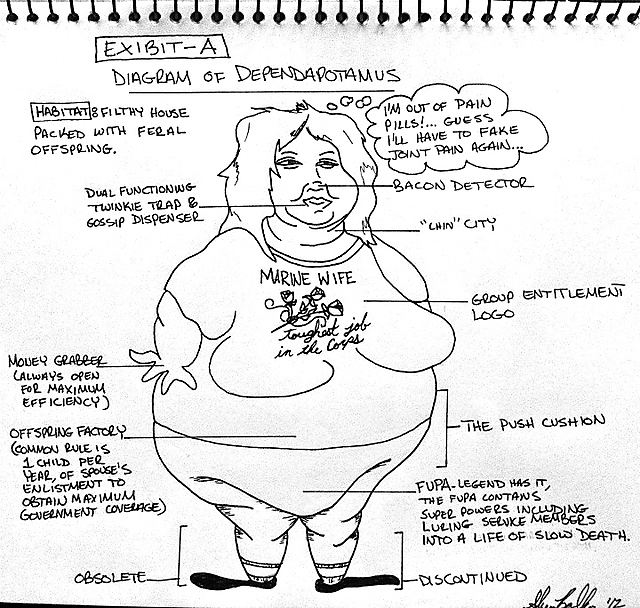 EXIBIT-A
DIAGRAM OF DEPENDAPOTAMUS
HABITAT: FILTHY HOUSE
PACKED WITH FERAL
OFFSPRING.
I'M OUT OF PAIN
PILLS!... GUESS
I'LL HAVE TO FAKE
JOINT PAIN AGAIN...
DUAL FUNCTIONING
TWINKIE TRAP &
GOSSIP DISPENSER
BACON DETECTOR
"CHIN" CITY
MARINE WIFE
toughest job
in the Corps
GROUP ENTITLEMENT
LOGO
MONEY GRABBER
(ALWAYS OPEN
FOR MAXIMUM
EFFICIENCY)
OFFSPRING FACTORY
(COMMON RULE IS
1 CHILD PER
YEAR, OF SPOUSE'S
ENLISTMENT TO
OBTAIN MAXIMUM
GOVERNMENT COVERAGE)
THE PUSH CUSHION
FUPA-LEGEND HAS IT,
THE FUPA CONTANS
SUPER POWERS INCLUDING
LURING SERVICE MEMBERS
INTO A LIFE OF SLOW DEATH.
OBSOLETE
DISCONTINUED
'12